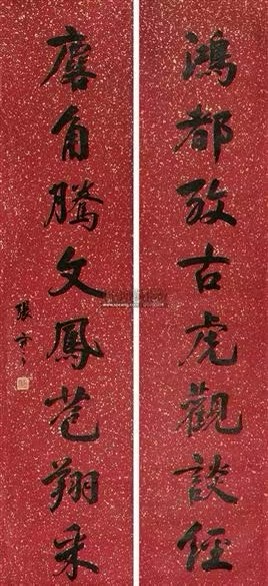 鴻都攷古虎觀談經
麐角騰文鳳苞翔采
張